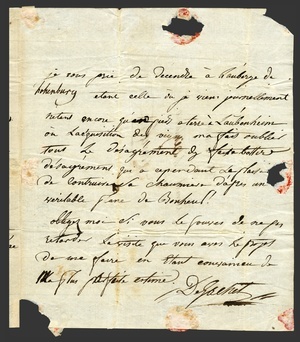 je vous prie de decendre à l'auberge de
hohenburg etant celle où je viens journellement
retens encore pied a terre a Laubenheim
ou Lacquisition des vins ma fait oublié
tous le desagrement de
desagrement qui a cependant Le
de contruire sa chaumiere dapres un
veritable plane de Bonheur!
obligez moi si vous le pouvez de ne pas
retarder La visite que vous avez Le projet
de me faire en etant convaincu de
Ma plus parfaite estime.